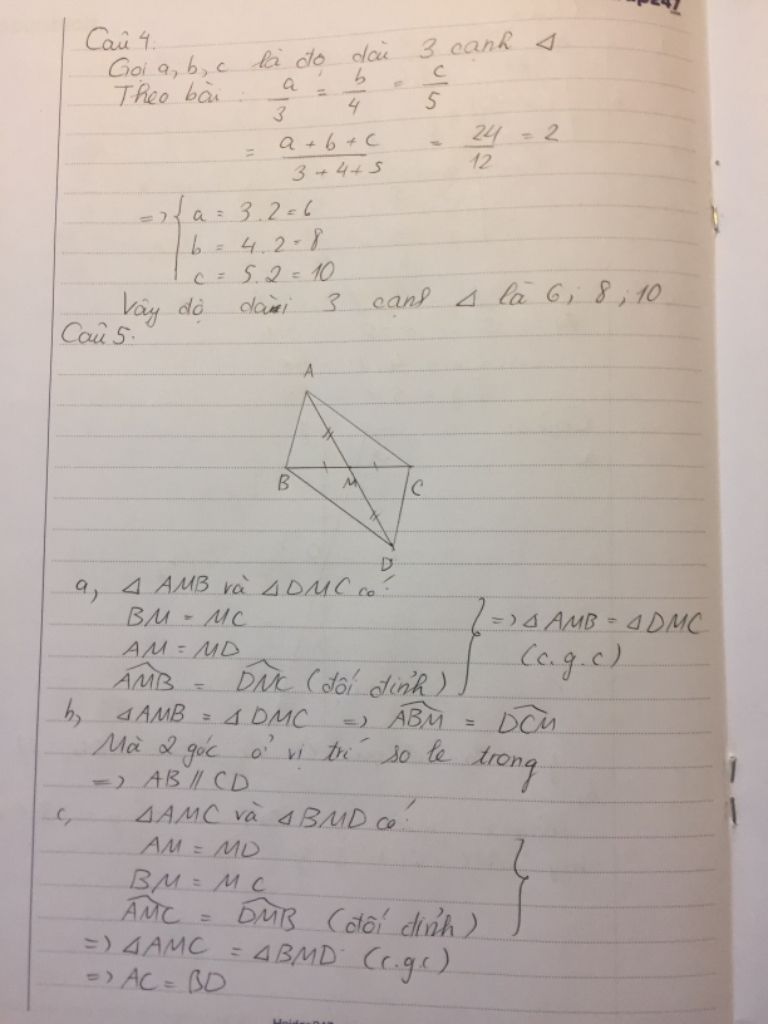 Câu 4.
Gọi a, b, c là độ dài 3 cạnh Δ
Theo bài: a/3 = b/4 = c/5
= (a + b + c)/(3 + 4 + 5) = 24/12 = 2
=> { a = 3.2 = 6
b = 4.2 = 8
c = 5.2 = 10
Vậy độ dài 3 cạnh Δ là 6; 8; 10
Câu 5.
A
B M C
D
a, Δ AMB và Δ DMC có:
BM = MC
AM = MD
} => Δ AMB = Δ DMC
(c.g.c)
\widehat{AMB} = \widehat{DMC} (đối đỉnh)
b, Δ AMB = Δ DMC => \widehat{ABM} = \widehat{DCM}
Mà 2 góc ở vị trí so le trong
=> AB // CD
c, Δ AMC và Δ BMD có:
AM = MD
BM = MC
\widehat{AMC} = \widehat{DMB} (đối đỉnh) }
=> Δ AMC = Δ BMD (c.g.c)
=> AC = BD